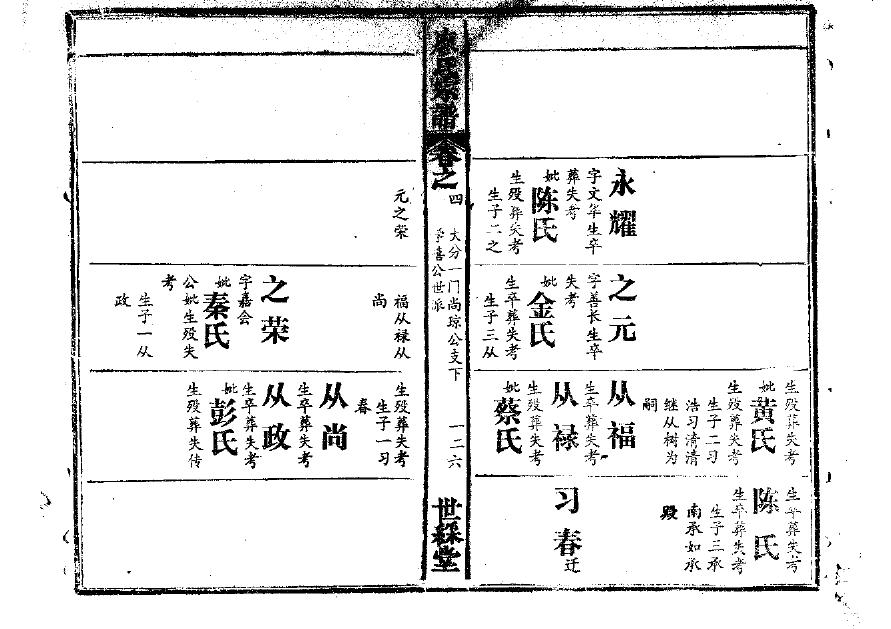 永耀
字文华生卒
葬失考
妣陈氏
生殁葬失考
生子二之
之元
字善长生卒
失考
妣金氏
生卒葬失考
生子三从
生殁葬失考
妣黄氏
生殁葬失考
生子二习
浩习清清
继从树为
嗣
从福
生卒葬失考
从禄
生殁葬失考
妣蔡氏
生卒葬失考
陈氏
生卒葬失考
生子三承
南承如承
殿
习春迁
氏宗譜
卷之四
大分一门尚琼公支下
季喜公世派
一二六
世綵堂
元之荣
福从禄从
尚
之荣
字嘉会
妣秦氏
公妣生殁失
考
生子一从
政
生殁葬失考
生子一习
春
从尚
生卒葬失考
从政
生卒葬失考
妣彭氏
生殁葬失传